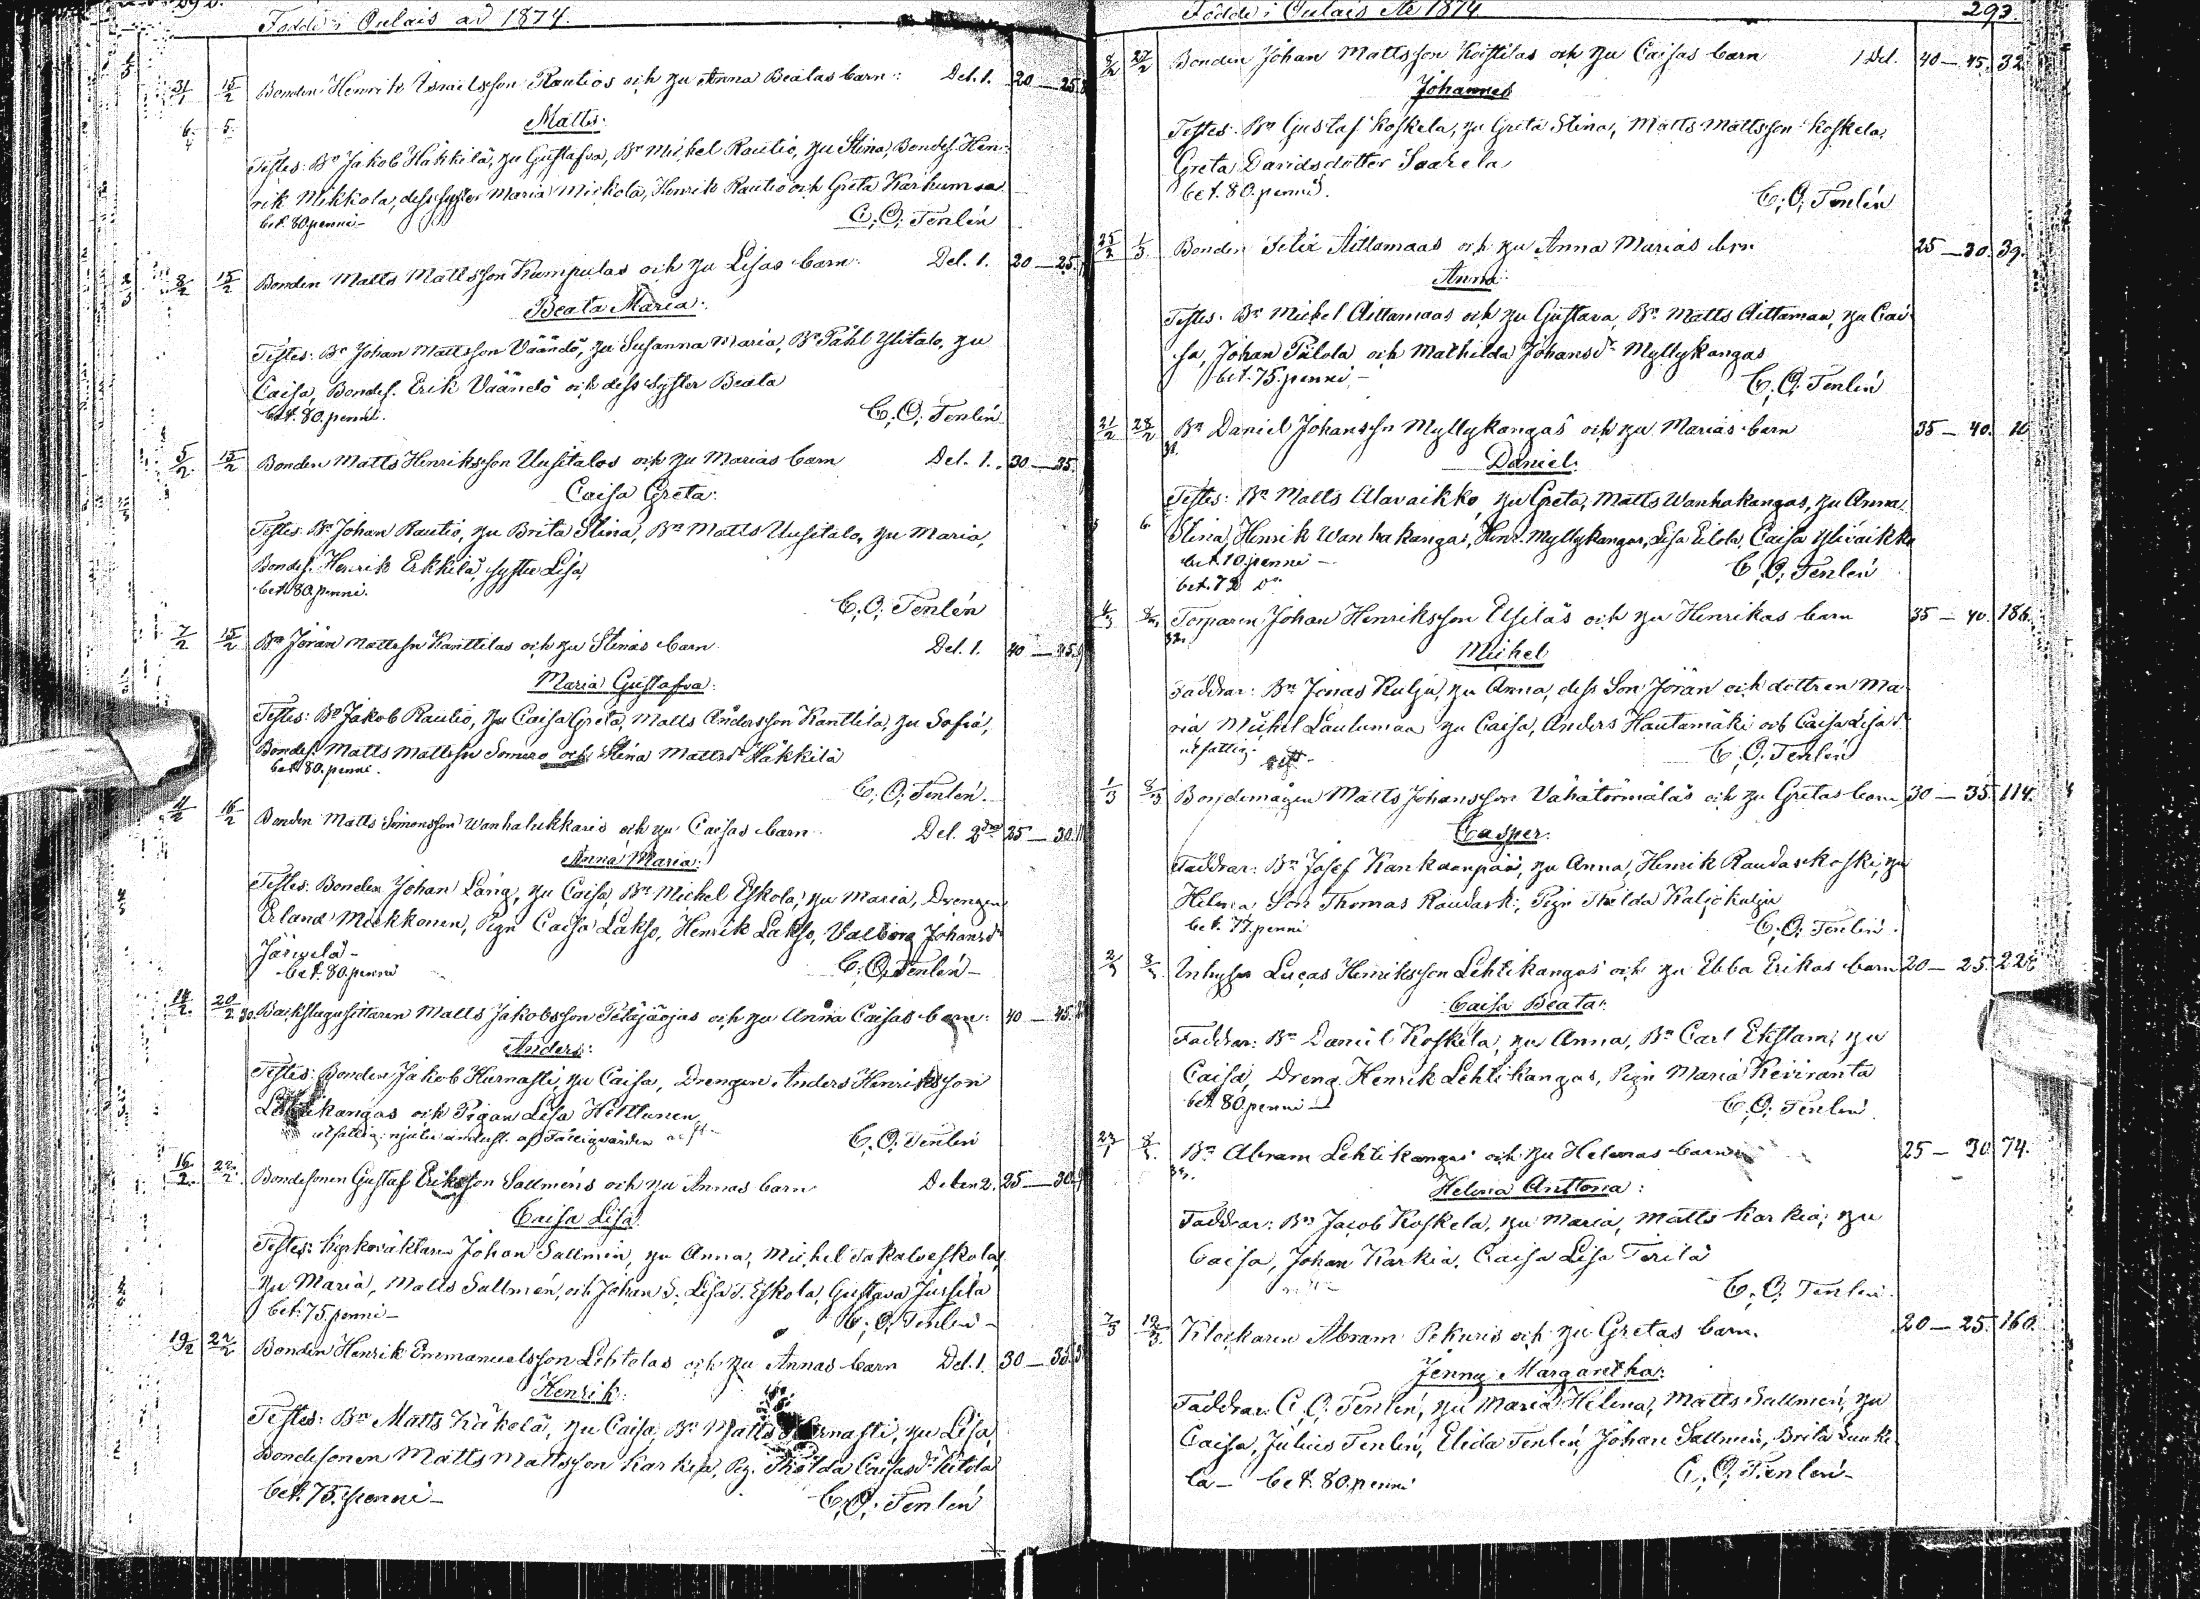 Födde i Oulais ad 1874.
31/1 15/2 Bonden Henrik Israelsson Rautios och Hu Anna Beatas barn: Del. 1. 20 — 25.
6. 5. Matts:
Testes: Bn Jakob Häkkilä, Hu Gustafva, Bn Mickel Rautio, Hu Stina, Bondes. Hen-
rik Mikkola, dess syster Maria Mickola, Henrik Rautio och Greta Karhumaa
bet. 80. penni —
C. O. Tenlén
2/2 15/2 Bonden Matts Mattsson Kumpulas och Hu Lisas barn. Del. 1. 20 — 25.
Beata Maria:
Testes: Bn Johan Mattsson Väändö, Hu Susanna Maria, Bn Påhl Ylitalo, Hu
Caisa, Bondes. Erik Väändö och dess syster Beata
bet. 80. penni.
C. O. Tenlén
5/2 15/2 Bonden Matts Henriksson Uusitalos och Hu Marias barn Del. 1. 30 — 35.
Caisa Greta:
Testes: Bn Johan Rautio, Hu Brita Stina, Bn Matts Uusitalo, Hu Maria,
Bondes. Henrik Erkkilä, syster Lisa,
bet. 80. penni.
C. O. Tenlén
7/2 15/2 Bn Jöran Mattssn Kanttilas och Hu Stinas barn Del. 1. 40 — 45.
Maria Gustafva:
Testes: Bn Jakob Rautio, Hu Caisa Greta, Matts Andersson Kanttila, Hu Sofia,
Bondes. Matts Mattssn Somero och Stina Mattsdr Häkkilä
bet. 80. penni.
C. O. Tenlén
11/2 16/2 Bonden Matts Simonsson Wanhalukkaris och Hu Caisas barn Del. 2dra 25 — 30.
Anna Maria:
Testes: Bonden Johan Lång, Hu Caisa, Bn Mickel Eskola, Hu Maria, Drengen
Erland Mickkonen, Pign Caisa Lakso, Henrik Lakso, Valborg Johansdr
Järvelä —
bet. 80. penni
C. O. Tenlén —
14/2 20/2 30. Backstugusittaren Matts Jakobsson Petäjäojas och Hu Anna Caisas barn: 40 — 45.
Anders:
Testes: Bonden Jakob Hurnasti, Hu Caisa, Drengen Anders Henriksson
Lehtikangas och Pigan Lisa Hilttunen
utfattig: af Fattigvården
C. O. Tenlén
16/2 22/2 Bondesonen Gustaf Eriksson Sallmens och Hu Annas barn Delen 2. 25 — 30.
Caisa Lisa:
Testes: Kyrkoväktaren Johan Sallmén, Hu Anna, Mickel Eskola,
Hu Maria, Matts Sallmén, och Johan S. Lisa Eskola, Gustava Jussila
bet. 75. penni —
C. O. Tenlén —
19/2 22/2 Bonden Henrik Emmanuelsson Lehtolas och Hu Annas barn Del. 1. 30 — 35.
Henrik:
Testes: Bn Matts Käkelä, Hu Caisa, Bn Matts Hurnasti, Hu Lisa,
Bondesonen Matts Mattsson Karkia, Pig. Thilda Caisasdr Kitola
bet. 75. penni —
C. O. Tenlén
Födde i Oulais År 1874. 293.
2/2 22/2 Bonden Johan Mattsson Koistilas och Hu Caisas barn 1 Del. 40 — 45. 32.
Johannes
Testes: Bn Gustaf Koskela, Hu Greta Stina, Matts Mattsson Koskela,
Greta Davidsdotter Saarela
bet. 80. penni.
C. O. Tenlén
25/2 1/3 Bonden Felix Aittamaas och Hu Anna Marias brn 25 — 30. 39.
Anna:
Testes: Bn Mickel Aittamaas och Hu Gustava, Bn Matts Aittamaa, Hu Cai-
sa, Johan Pälola och Mathilda Johansdr Myllykangas
bet. 75. penni. —
C. O. Tenlén
21/2 28/2 Bn Daniel Johanssn Myllykangas och Hu Marias barn 35 — 40. 10
31. Daniel:
Testes: Bn Matts Alavaikko, Hu Greta, Matts Wanhakangas, Hu Anna
6 Stina, Henrik Wanhakangas, Henr. Myllykangas, Lisa Eilola, Caisa Ylivaikko
bet. 10. penni —
bet. 72 do
C. O. Tenlén
4/3 8/3 Torparen Johan Henriksson Elsiläs och Hu Henrikas barn 35 — 40. 186.
32. Mickel
Faddrar: Bn Jonas Kulju, Hu Anna, dess Son Jöran och dottren Ma-
ria Mickel Lautumaa Hu Caisa, Anders Hautamäki och Caisa Lisa
utfattig.
C. O. Tenlén
1/3 8/3 Bondemågen Matts Johansson Vähätörmäläs och Hu Gretas barn 30 — 35. 114.
Casper:
Faddrar: Bn Josef Kankaanpää, Hu Anna, Henrik Raudaskoski, Hu
Helena, Son Thomas Raudask:, Pign Thilda Kaljokulju
bet. 77. penni
C. O. Tenlén.
2/3 8/3 Inhyses Lucas Henriksson Lehtikangas och Hu Ebba Erikas barn 20 — 25. 228
Caisa Beata:
Faddrar: Bn Daniel Koskela, Hu Anna, Bn Carl Ekstam, Hu
Caisa, Dreng. Henrik Lehtikangas, Pign Maria Keviranta
bet. 80. penni —
C. O. Tenlén
8/3 Bn Abram Lehtikangas och Hu Helenas barn 25 — 30. 74.
33. Helena Anttona:
Faddrar: Bn Jacob Koskela, Hu Maria, Matts Karkia, Hu
Caisa, Johan Karkia, Caisa Lisa Terila
C. O. Tenlén.
7/3 12/3 Klockaren Abram Pekuris och Hu Gretas barn. 20 — 25. 160
Jenny Margaretha:
Faddrar: C. O. Tenlén, Hu Maria Helena, Matts Sallmén, Hu
Caisa, Julius Tenlén, Elida Tenlén, Johan Sallmén, Brita Junki-
la — bet. 80. penni
C. O. Tenlén —